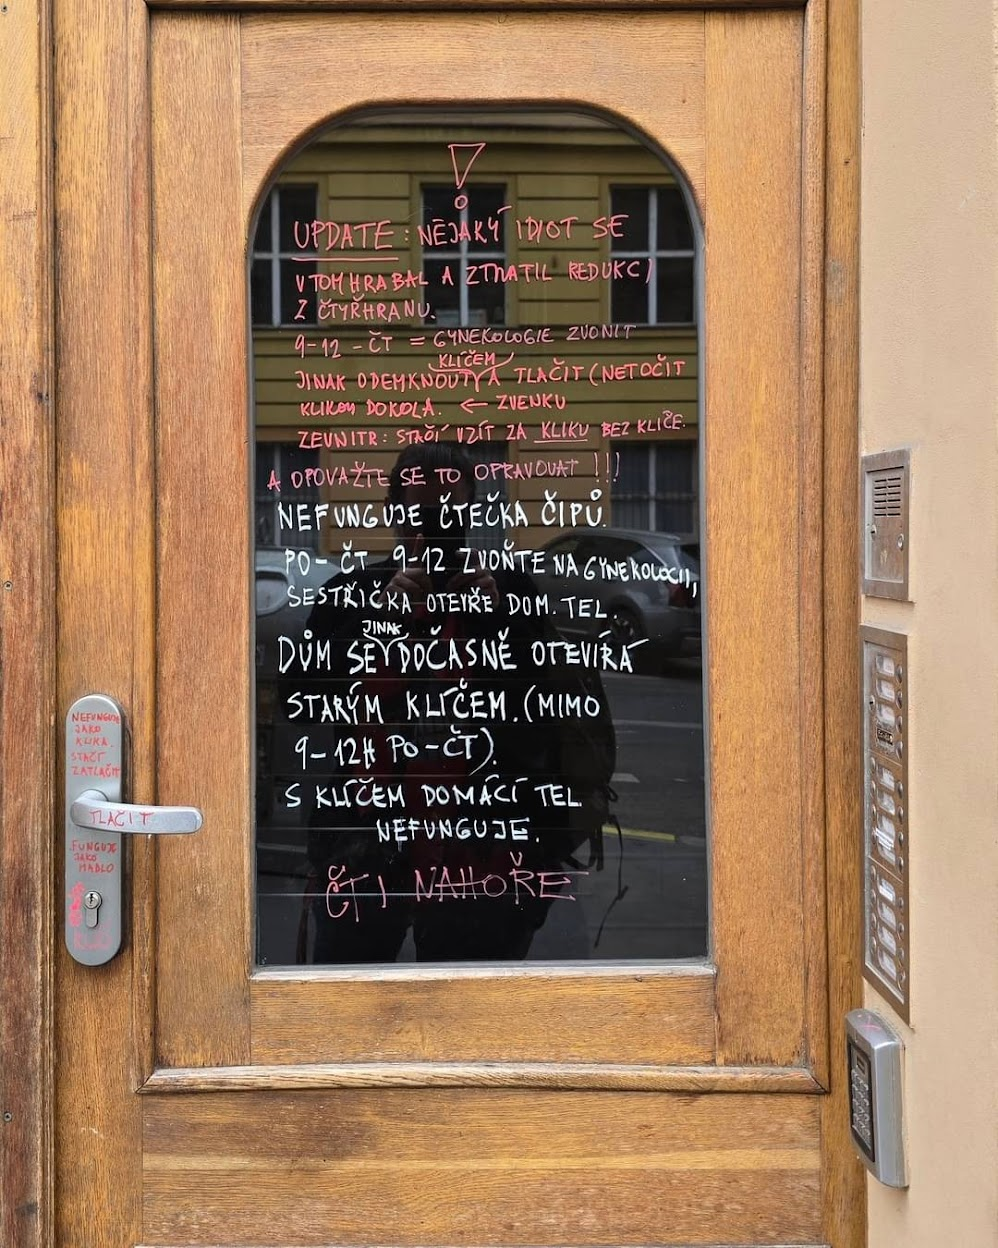 !
UPDATE: NĚJAKÝ IDIOT SE
V TOM HRABAL A ZTRATIL REDUKCI
Z ČTYŘHRANU.
9-12 - ČT = GYNEKOLOGIE ZVONIT
KLÍČEM
JINAK ODEMKNOUT A TLAČIT (NETOČIT
KLIKOU DOKOLA. ← ZVENKU
ZEVNITR: STAČÍ VZÍT ZA KLIKU BEZ KLÍČE.
A OPOVAŽTE SE TO OPRAVOVAT !!!
NEFUNGUJE ČTEČKA ČIPŮ.
PO - ČT 9-12 ZVOŇTE NA GYNEKOLOGII,
SESTŘIČKA OTEVŘE DOM. TEL.
JINAK
DŮM SE DOČASNĚ OTEVÍRÁ
STARÝM KLÍČEM. (MIMO
9-12H PO-ČT).
S KLÍČEM DOMÁCÍ TEL.
NEFUNGUJE.
ČTI NAHOŘE
NEFUNGUJE
JAKO
KLIKA.
STAČÍ
ZATLAČIT
TLAČIT
FUNGUJE
JAKO
MADLO